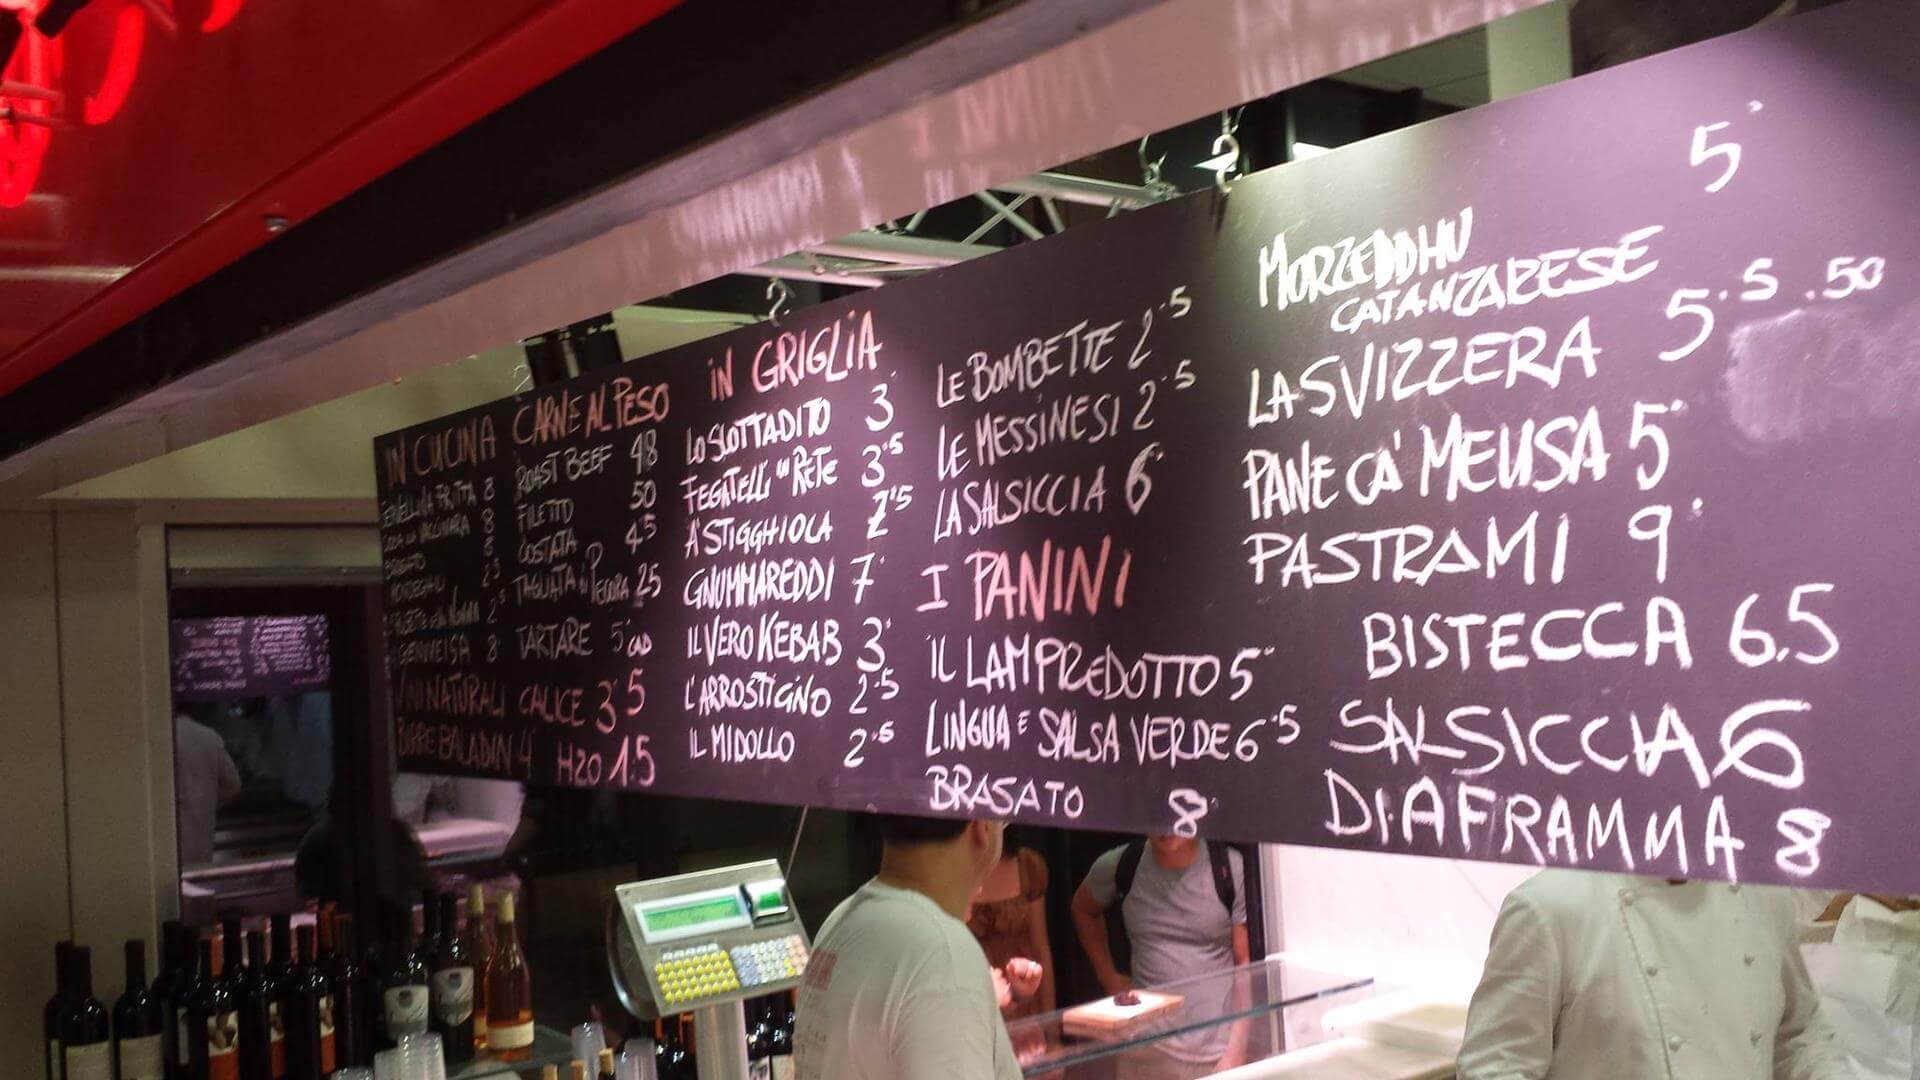 IN CUCINA
CERVELLINA FRITTA 8
CODA ALLA VACCINARA 8
BRASATO 8
MONDEGHILI 2.5
POLPETTE DELLA NONNA 2.5
GENOVESA 8
VINI NATURALI CALICE 3.5
BIRRE BALADIN 4 H2O 1.5
CARNE AL PESO
ROAST BEEF 48
FILETTO 50
COSTATA 45
TAGLIATA DI PECORA 25
TARTARE 5 CAD
IN GRIGLIA
LO SLOTTADITO 3
FEGATELLI IN RETE 3.5
A' STIGGHIOLA 2.5
GNUMMAREDDI 7
IL VERO KEBAB 3
L'ARROSTICINO 2.5
IL MIDOLLO 2.5
LE BOMBETTE 2.5
LE MESSINESI 2.5
LA SALSICCIA 6
I PANINI
IL LAMPREDOTTO 5
LINGUA E SALSA VERDE 6.5
BRASATO 8
5
MORZEDDHU
CATANZARESE
LA SVIZZERA 5.5 .50
PANE CA' MEUSA 5
PASTRAMI 9
BISTECCA 6.5
SALSICCIA 6
DIAFRAMMA 8